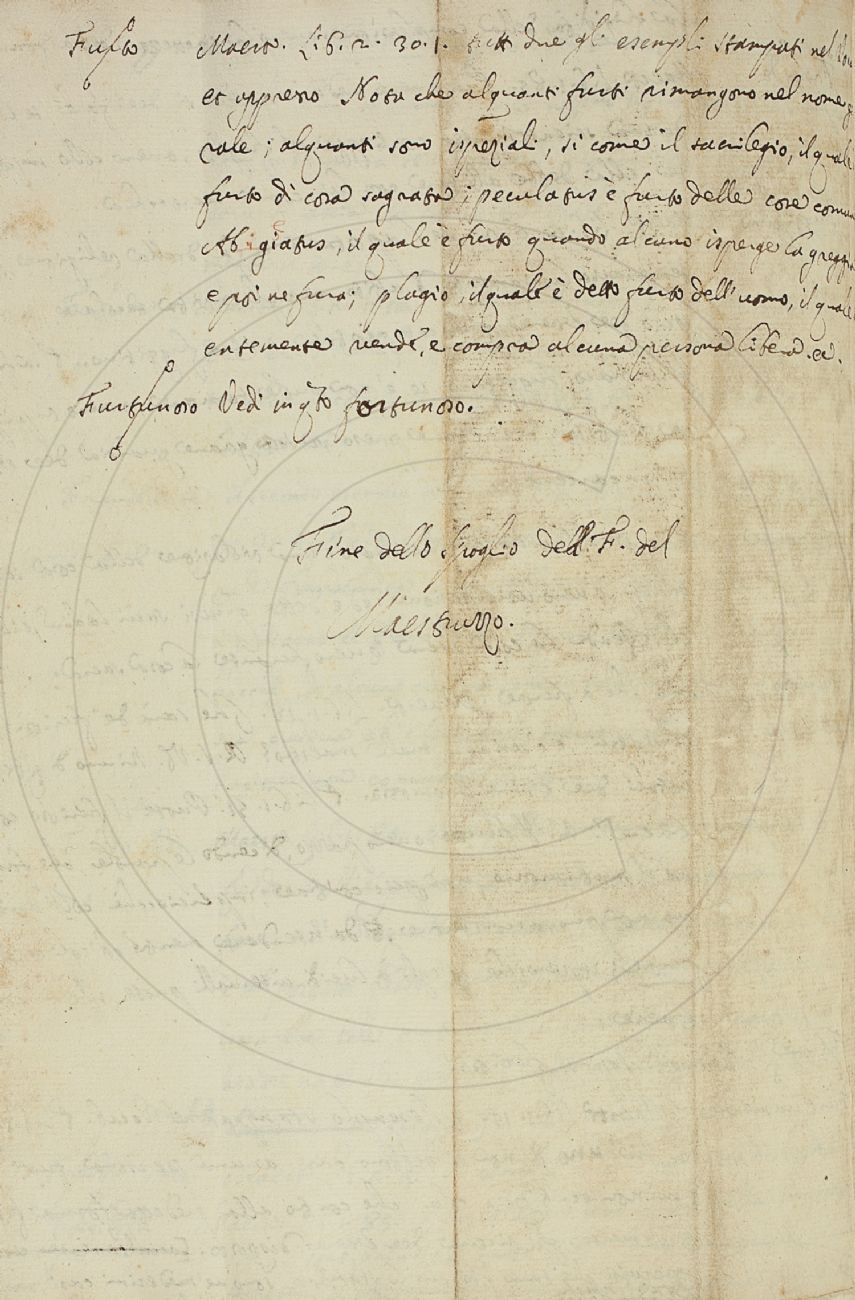 Furto Maest. Lib. 2. 30. 1. tutti due gli esempli stampati nel Voc
et appresso Nota che alquanti furti rimangono nel nome g
rale; alquanti sono ispeziali, si come il sacrilegio, il quale
furto di cosa sagrata; peculatus è furto delle cose comun
Abigiatus, il quale è furto quando alcuno isperge la greggia
e poi ne fura; plagio, il quale è detto furto dell'uomo, il quale
entemente vende, e compra alcuna persona libera. ec.
Furtunoso Vedi in q.to fortunoso.
Fine dello Spoglio dell'F. del
Maestruzzo.